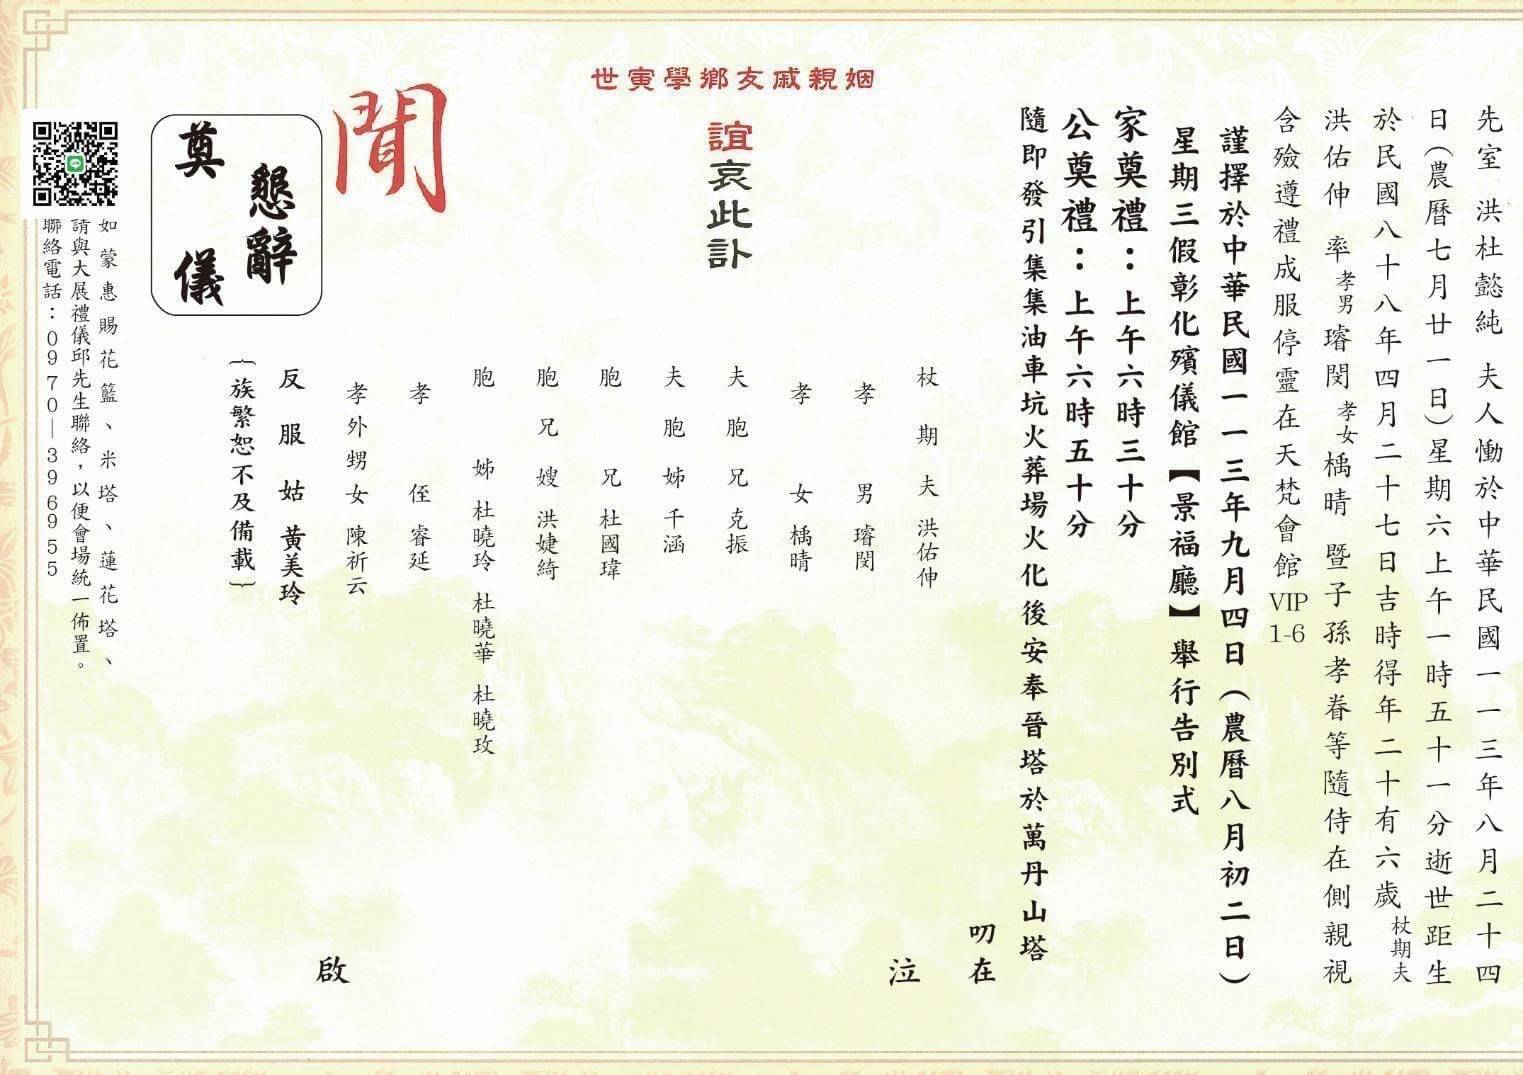 先室 洪杜懿純 夫人慟於中華民國一一三年八月二十四
日(農曆七月廿一日)星期六上午一時五十一分逝世距生
於民國八十八年四月二十七日吉時得年二十有六歲 杖期夫
洪佑伸 率 孝男 璿閔 孝女 楀晴 暨子孫孝眷等隨侍在側親視
含殮遵禮成服停靈在天梵會館VIP1-6
謹擇於中華民國一一三年九月四日(農曆八月初二日)
星期三假彰化殯儀館【景福廳】舉行告別式
家奠禮：上午六時三十分
公奠禮：上午六時五十分
隨即發引集集油車坑火葬場火化後安奉晉塔於萬丹山塔
叨在
世寅學鄉友戚親姻
誼哀此訃
聞
杖期夫 洪佑伸
孝男 璿閔
孝女 楀晴
夫胞兄 克振
夫胞姊 千涵
胞兄 杜國瑋
胞兄嫂 洪婕綺
胞姊 杜曉玲 杜曉華 杜曉玫
孝侄 睿延
孝外甥女 陳祈云
反服姑 黃美玲
泣
啟
{族繁恕不及備載}
懇辭
奠儀
如蒙惠賜花籃、米塔、蓮花塔、
請與大展禮儀邱先生聯絡，以便會場統一佈置。
聯絡電話：0970—396955